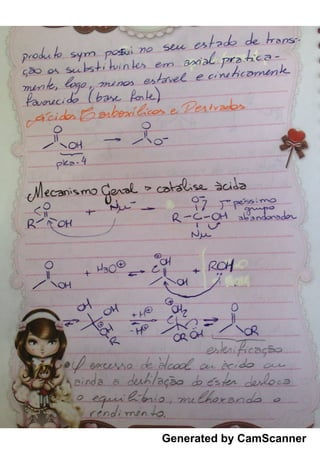 produto sym possui no seu estado de transi-
ção os substituintes em axial pratica-
mente, logo, menos estável e cineticamente
favorecido (base forte)
Ácidos Carboxílicos e Derivados
O O
OH → O⁻
pka~4
Mecanismo Geral > catálise ácida
O + Nu⁻ → O⁻ péssimo
R OH R-C-OH grupo
Nu abandonador
O + H₃O⊕ ⇌ ⊕OH + ROH
OH OH
OH OH +H⊕ OH ⊕OH₂ O
⊕O -H⊕ OR OR
H R
esterificação
O excesso de álcool ou ácido ou
ainda a destilação do éster desloca
o equilíbrio, melhorando o
rendimento.
Generated by CamScanner